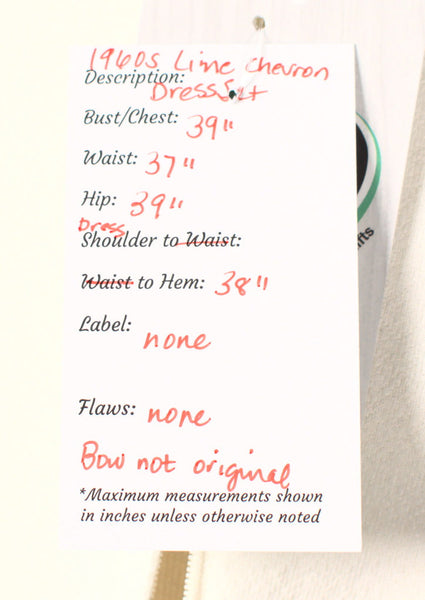 1960s Lime Chevron
Description:
Dress Set
Bust/Chest: 39"
Waist: 37"
Hip: 39"
Dress
Shoulder to Waist:
Waist to Hem: 38"
Label: none
Flaws: none
Bow not original
*Maximum measurements shown
in inches unless otherwise noted